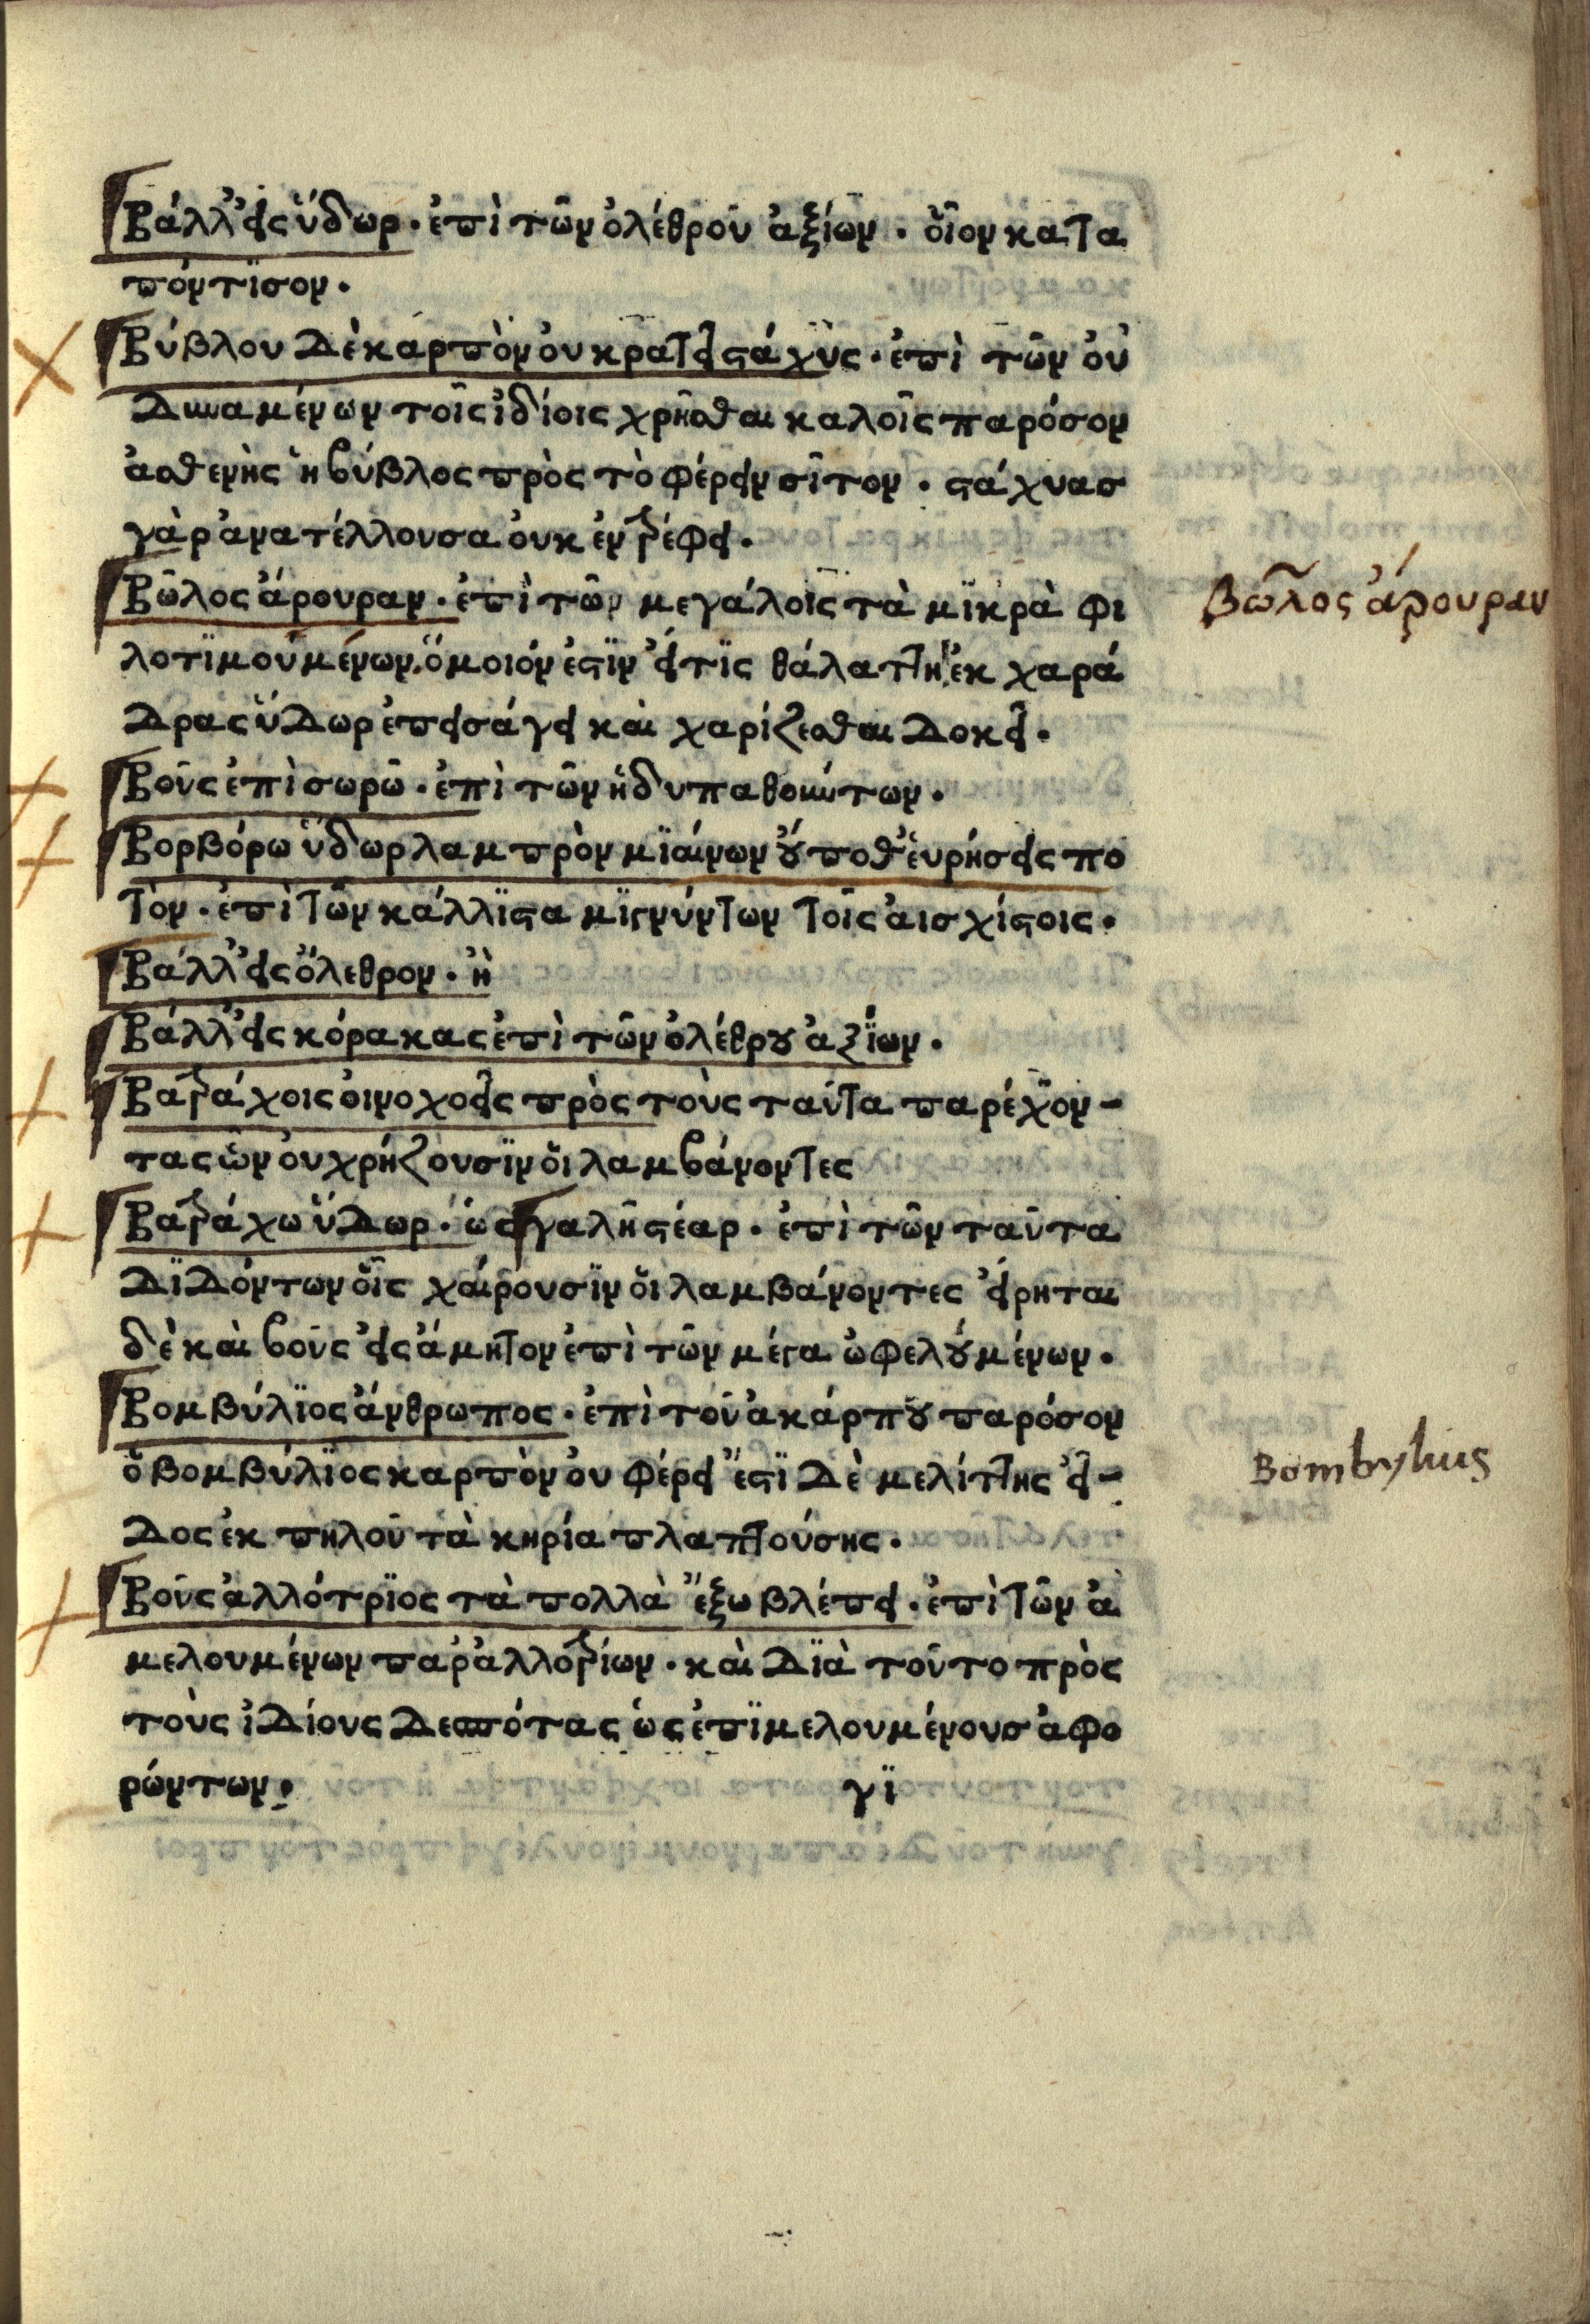 Βάλλ' εἰς ὕδωρ. ἐπὶ τῶν ὀλέθρου ἀξίων. οἷον κατα
πόντϊσον.
Βύβλου δὲ καρπὸν οὐ κρατεῖ στάχὺς. ἐπὶ τῶν οὐ
δυναμένων τοῖς ἰδίοις χρῆσθαι καλοῖς παρόσον
ἀσθενὴς ἡ βύβλος πρὸς τὸ φέρειν σῖτον. στάχυασ
γὰρ ἀνατέλλουσα οὐκ ἐντρέφει.
Βῶλος ἄρουραν. ἐπὶ τῶν μεγάλοις τὰ μϊκρὰ φι
λοτϊμουμένων. ὅμοιόν ἐστϊν εἴ τϊς θάλαττῃ ἐκ χαρά
δρας ὕδωρ ἐπεισάγει καὶ χαρίζεσθαι δοκεῖ.
Βοῦς ἐπὶ σωρῶ. ἐπὶ τῶν ἡδυπαθούντων.
Βορβόρω ὕδωρ λαμπρὸν μϊαίνων οὔποθ' εὑρήσεις πο
τόν. ἐπὶ τῶν κάλλϊστα μϊγνύντων τοῖς αἰσχίστοις.
Βάλλ' εἰς ὄλεθρον. ἢ
Βάλλ' εἰς κόρακας ἐπὶ τῶν ὀλέθρου ἀξΐων.
Βατράχοις οἰνοχοεῖς πρὸς τοὺς ταῦτα παρέχον-
τας ὧν οὐ χρῄζουσϊν οἱ λαμβάνοντες
Βατράχω ὕδωρ. ὡς γαλῆ στέαρ. ἐπὶ τῶν ταῦτα
δϊδόντων οἷς χαίρουσϊν οἱ λαμβάνοντες εἴρηται
δὲ καὶ βοῦς εἰς ἄμητον ἐπὶ τῶν μέγα ὠφελουμένων.
Βομβύλϊος ἄνθρωπος. ἐπὶ τοῦ ἀκάρπου παρόσον
ὁ βομβύλϊος καρπὸν οὐ φέρει ἔστϊ δὲ μελίττης εἶ-
δος ἐκ πηλοῦ τὰ κηρία πλαττούσης.
Βοῦς ἀλλότρϊος τὰ πολλὰ ἔξω βλέπει. ἐπὶ τῶν ἀ
μελουμένων παρ' ἀλλοτρίων. καὶ δϊὰ τοῦτο πρὸς
τοὺς ἰδίους δεσπότας ὡς ἐπϊμελουμένουσ ἀφο
ρώντων.
γϊ
βῶλος ἄρουραν
Bombylius